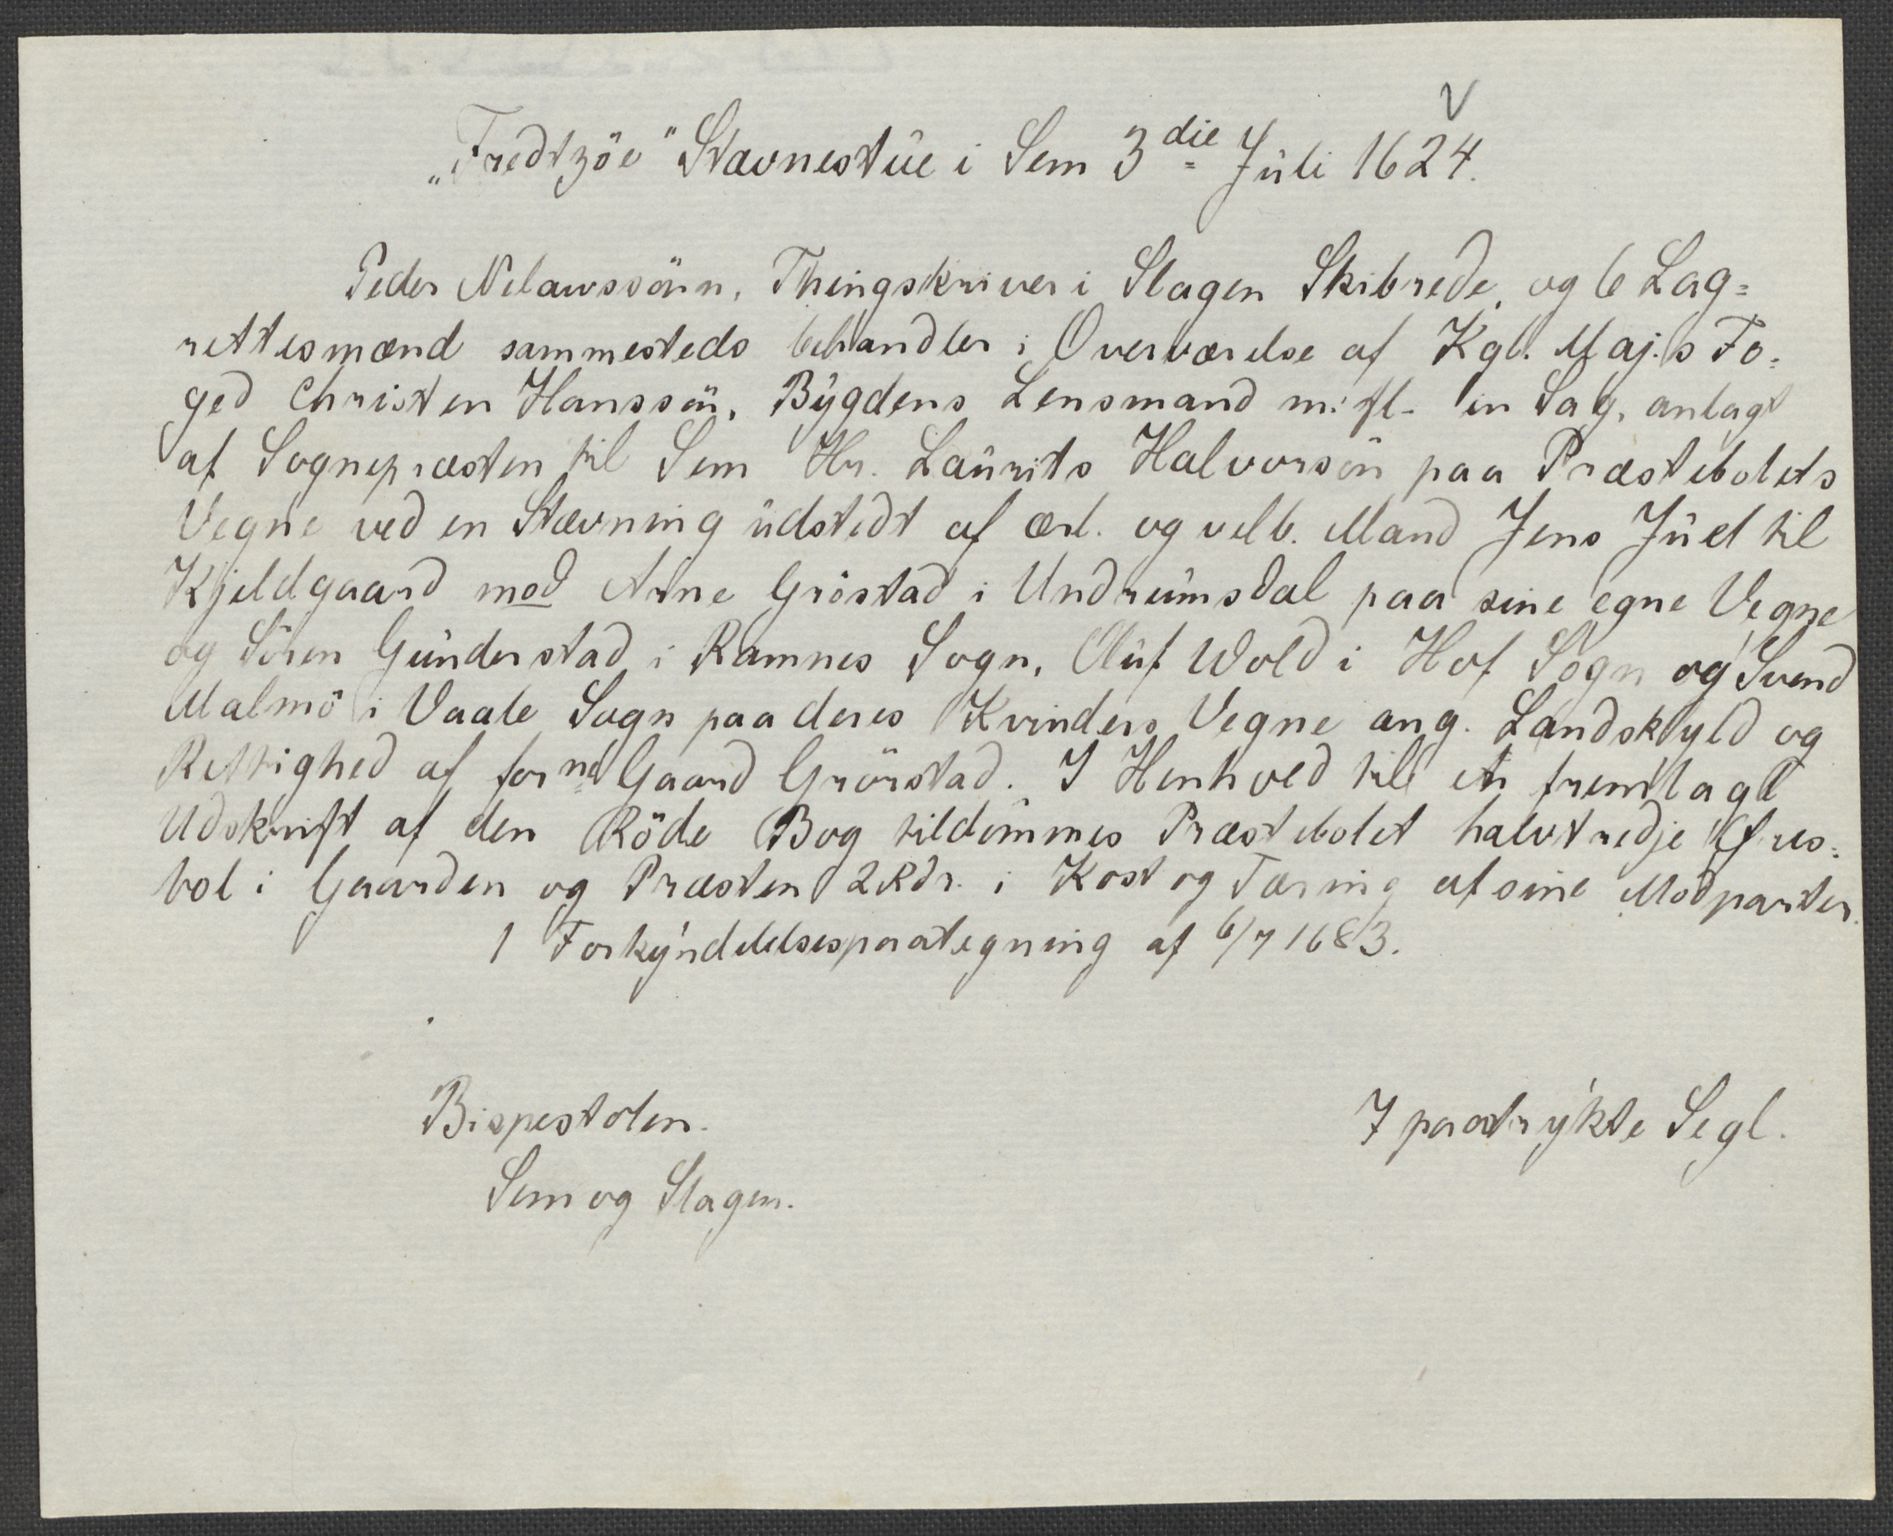 V
„Fredtzöe" Stævnestue i Sem 3die Juli 1624.
Peder Nelawssönn, Thingskriver i Slagen Skibrede, og 6 Lag=
rettesmænd sammesteds behandler i Overværelse af Kgl. Maj.s Fo=
ged Christen Hanssön, Bygdens Lensmand m. fl. en Sag, anlagt
af Sognepræsten til Sem Hr. Laurits Halvorsön paa Præstebolets
Vegne ved en Stævning udstedt af ærl. og velb. Mand Jens Juel til
Kjeldgaard mod Arne Gröstad i Undrumsdal paa sine egne Vegne
og Sören Gunderstad i Ramnes Sogn, Oluf Wold i Hof Sogn og Svend
Malmö i Vaale Sogn paa deres Kvinders Vegne ang. Landskyld og
Rettighed af forne Gaard Grörstad. I Henhold til et fremlagt
Udskrift af den Röde Bog tildömmes Præstebolet halvtredje Öres=
bol i Gaarden og Præsten 2 Rdr. i Kost og Tæring af sine Modparter.
1 Forkyndelsespaategning af 6/7 1683.
Bispestolen.
7 paatrykte Segl.
Sem og Slagen.